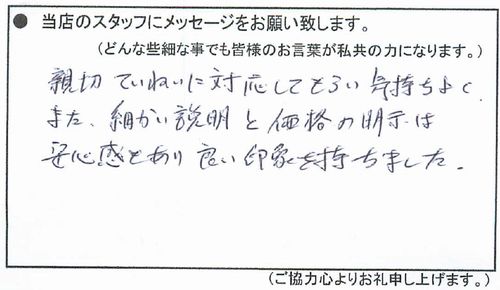 ● 当店のスタッフにメッセージをお願い致します。
(どんな些細な事でも皆様のお言葉が私共の力になります。)
親切ていねいに対応してもらい気持ちよく
また、細かい説明と価格の明示は
安心感もあり良い印象を持ちました。
(ご協力心よりお礼申し上げます。)